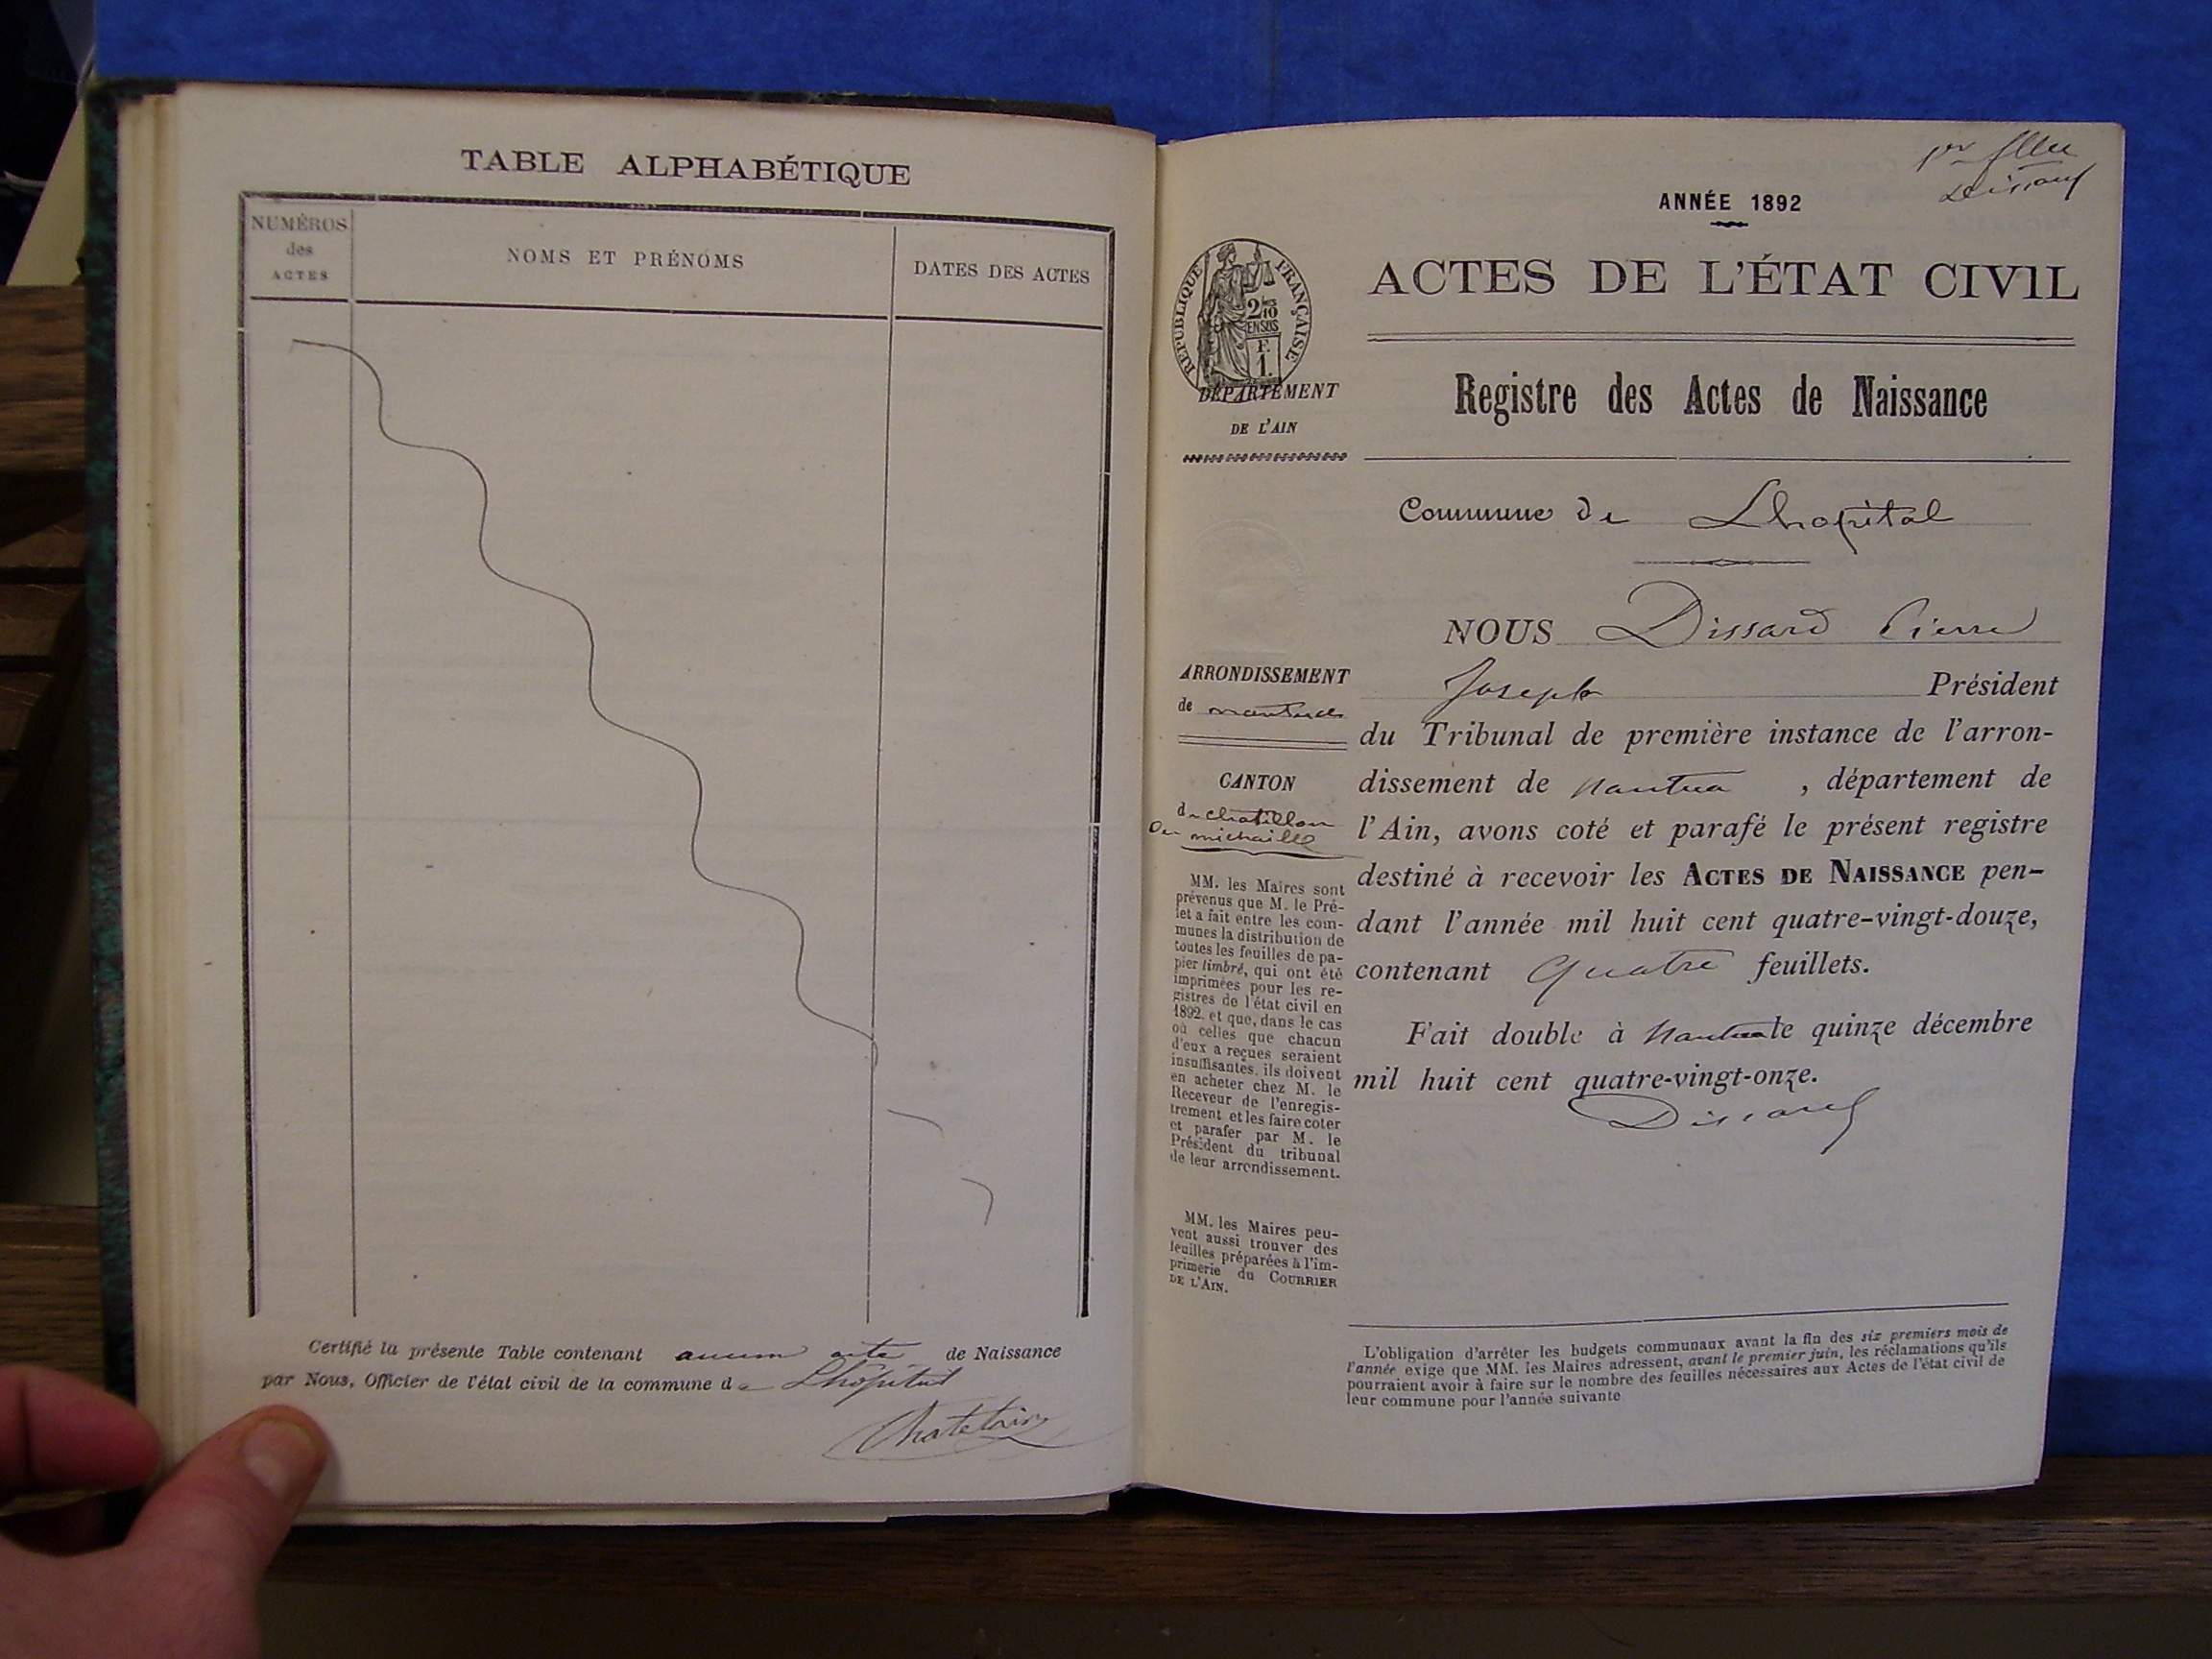 TABLE ALPHABÉTIQUE
NUMÉROS
des
ACTES
NOMS ET PRÉNOMS
DATES DES ACTES
Certifié la présente Table contenant aucun acte de Naissance
par Nous, Officier de l'état civil de la commune de Lhôpital
Chatelain
1er fllet
Dissard
ANNÉE 1892
ACTES DE L'ÉTAT CIVIL
RÉPUBLIQUE FRANÇAISE
2/10
EN SUS
F.
1.
DÉPARTEMENT
DE L'AIN
Registre des Actes de Naissance
Commune de Lhopital
NOUS Dissard Pierre
Joseph Président
du Tribunal de première instance de l'arron-
dissement de Nantua , département de
l'Ain, avons coté et parafé le présent registre
destiné à recevoir les ACTES DE NAISSANCE pen-
dant l'année mil huit cent quatre-vingt-douze,
contenant Quatre feuillets.
Fait double à Nantua le quinze décembre
mil huit cent quatre-vingt-onze.
Dissard
ARRONDISSEMENT
de nantua
CANTON
de chatillon
de michaille
MM. les Maires sont
prévenus que M. le Pré-
fet a fait entre les com-
munes la distribution de
toutes les feuilles de pa-
pier timbré, qui ont été
imprimées pour les re-
gistres de l'état civil en
1892, et que, dans le cas
où celles que chacun
d'eux a reçues seraient
insuffisantes, ils doivent
en acheter chez M. le
Receveur de l'enregis-
trement et les faire coter
et parafer par M. le
Président du tribunal
de leur arrondissement.
MM. les Maires peu-
vent aussi trouver des
feuilles préparées à l'im-
primerie du COURRIER
DE L'AIN.
L'obligation d'arrêter les budgets communaux avant la fin des six premiers mois de
l'année exige que MM. les Maires adressent, avant le premier juin, les réclamations qu'ils
pourraient avoir à faire sur le nombre des feuilles nécessaires aux Actes de l'état civil de
leur commune pour l'année suivante